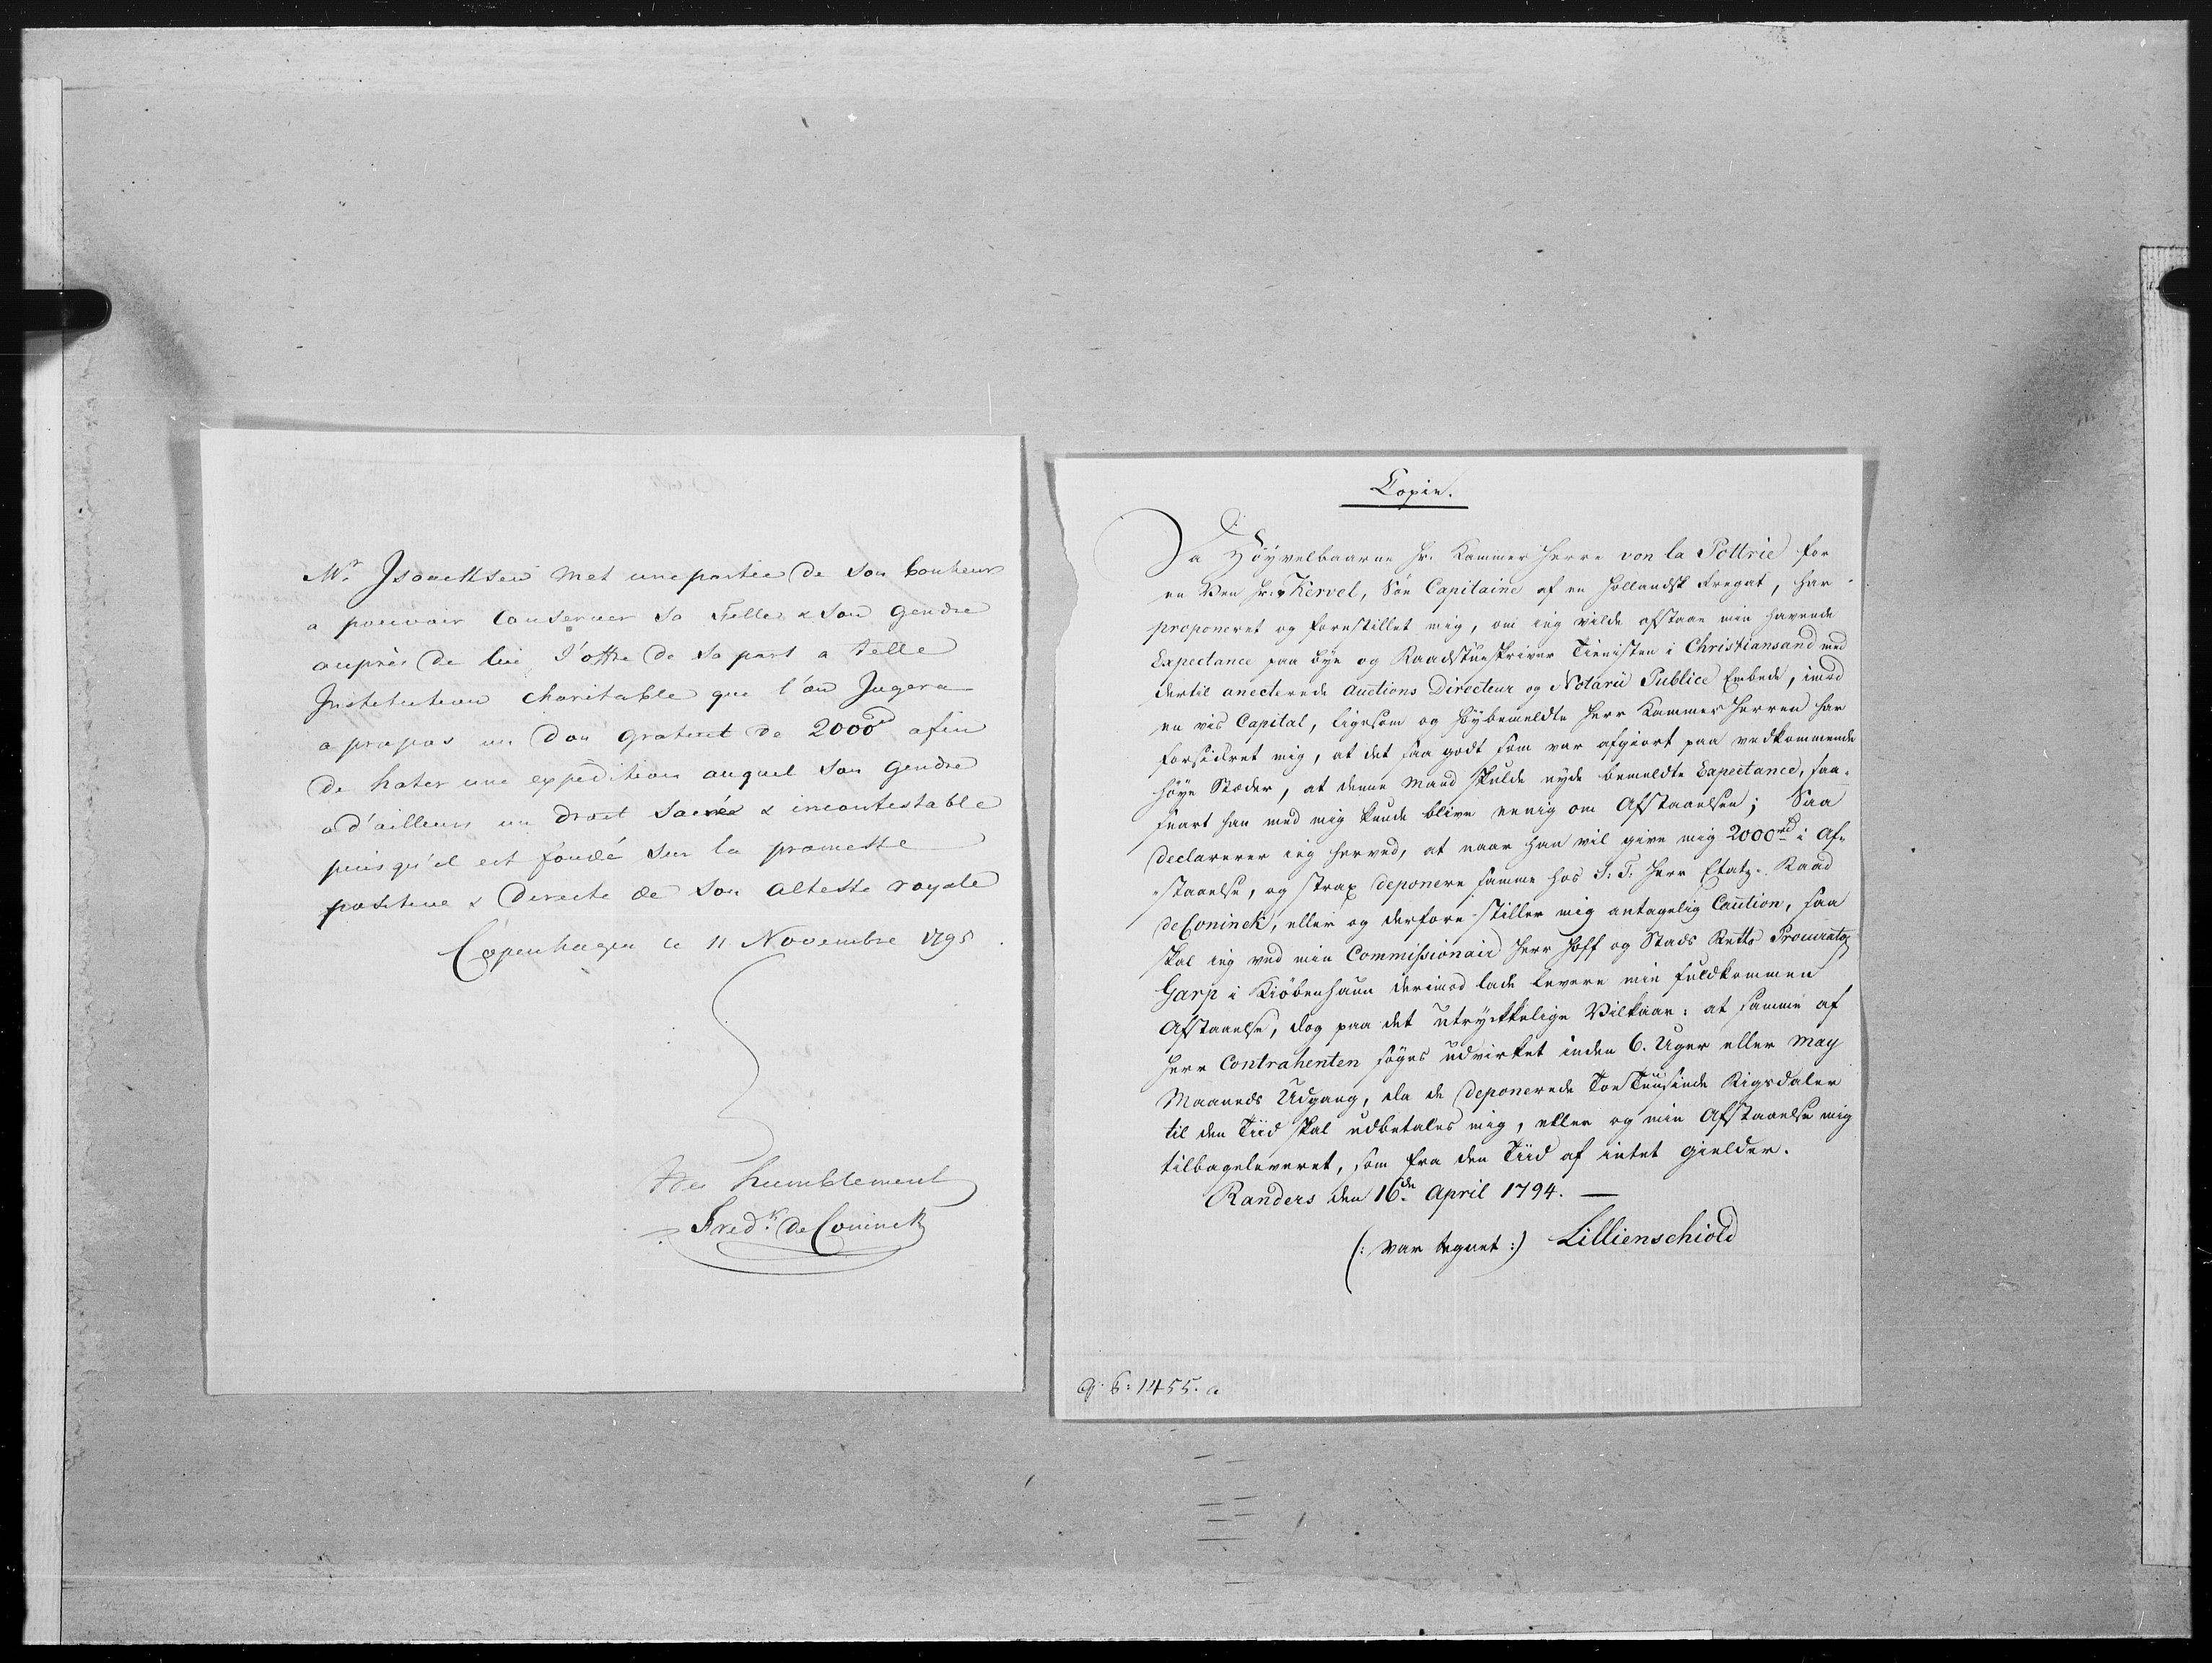 Mr. Isaacksen met une partie de son bonheur
a pouvoir Conserver sa Fille & son Gendre
auprès de lui, J'offre de sa part a telle
Institution charitable que l'on Jugera
apropos un Don Gratuit de 2000 afin
de hater une expédition auquel son Gendre
a d'ailleurs un Droit Sacrée & incontestable
puisqu'il est fondé sur la promesse
positive & Directe de son Altesse royale
Copenhagen le 11 Novembre 1795.
tres humblement
Fredk. de Coninck
Copie.
Da Høyvelbaarne Hr. Kammer Herre von la Pottrie for
en Ven Hr. v Kervel, Søe Capitaine af en Hollandsk Fregat, har
proponeret og forestillet mig, om ieg vilde afstaae min havende
Expectance paa Bye og Raadstueskriver Tienisten i Christiansand med
dertil anecterede Auctions Directeur og Notarii Publici Embede, imod
en vis Capital, ligesom og Høybemeldte Herr Kammer Herren har
forsikret mig, at det saa godt som var afgiort paa vedkommende
høye Stæder, at denne Mand skulde nyde bemeldte Expectance, saa-
snart han med mig kunde blive eenig om Afstaaelsen; Saa
declarerer ieg herved, at naar han vil give mig 2000rd i Af-
-staaelse, og strax deponere samme hos S. T. Herr Etatz-Raad
de Coninck, eller og derfore stiller mig antagelig Caution, saa
skal ieg ved min Commissionair Herr Hoff og Stads Retts Procurator
Garp i Kiøbenhaun derimod lade levere min fuldkommen
Afstaaelse, dog paa det udtrykkelige Vilkaar: at samme af
Herr Contrahenten søges udvirket inden 6. Uger eller May
Maaneds Udgang, da de deponerede Toe Tuusinde Rigsdaler
til den Tiid skal udbetales mig, eller og min Afstaaelse mig
tilbageleveret, som fra den Tiid af intet gielder.
Randers den 16de April 1794. —
(: var tegnet :) Lillienschiold
1455. a